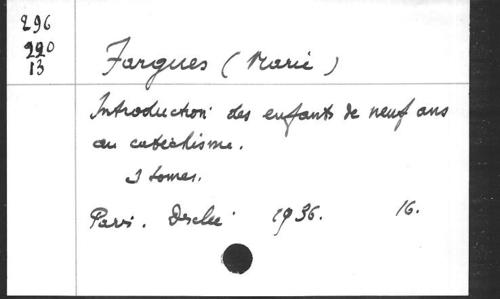 296
220
13
Fargues (Marie)
Introduction des enfants de neuf ans
au catéchisme.
tomes.
Paris. Desclée 1936. 16.